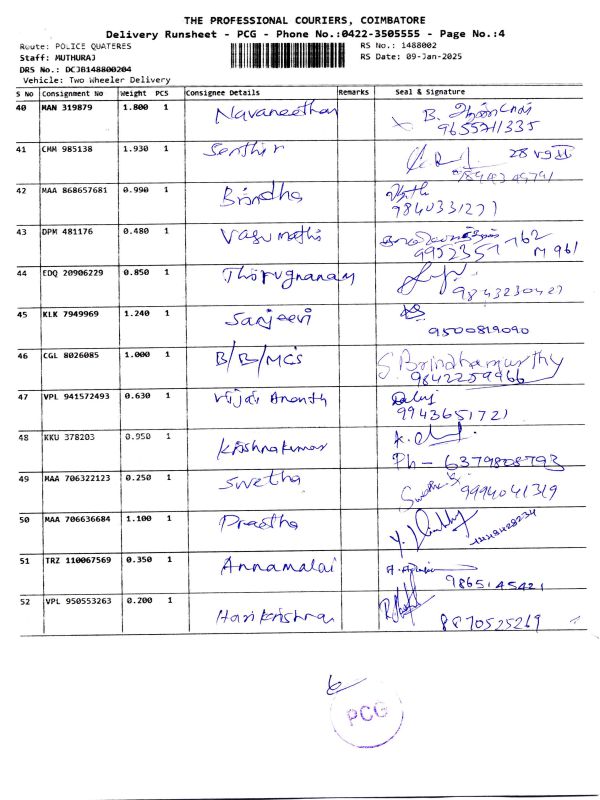 THE PROFESSIONAL COURIERS, COIMBATORE
Delivery Runsheet - PCG - Phone No.:0422-3505555 - Page No.:4
Route: POLICE QUATERES RS No.: 1488002
Staff: MUTHURAJ RS Date: 09-Jan-2025
DRS No.: DCJB148800204
Vehicle: Two Wheeler Delivery
S No Consignment No Weight PCS Consignee Details Remarks Seal & Signature
40 MAN 319879 1.800 1 Navaneethan B.
9655711335
41 CMM 985138 1.930 1 Senthil
42 MAA 868657681 0.990 1 Brindha
9840331271
43 DPM 481176 0.480 1 Vasumathi
44 EDQ 20906229 0.850 1 Thirugnanam
9843230427
45 KLK 7949969 1.240 1 Sanjeevi
9500819090
46 CGL 8026085 1.000 1 B/B/MCS S. Brindhamurthy
9842259966
47 VPL 941572493 0.630 1 Vijai Ananth
9943651721
48 KKU 378203 0.950 1 Krishnakumar
Ph - 6379828793
49 MAA 706322123 0.250 1 Swetha 9994041319
50 MAA 706636684 1.100 1
51 TRZ 110067569 0.350 1 Annamalai
9865145421
52 VPL 950553263 0.200 1 Harikrishnan
8870525269
PCG